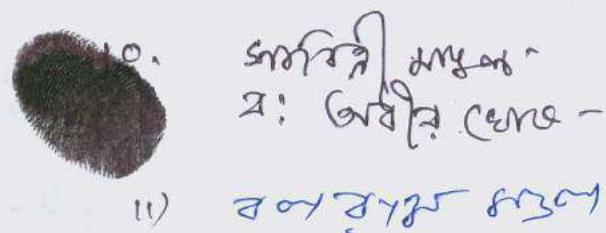 10. সাবিত্রী মণ্ডল
ব: অধীর ঘোড
11) বলরাম মণ্ডল